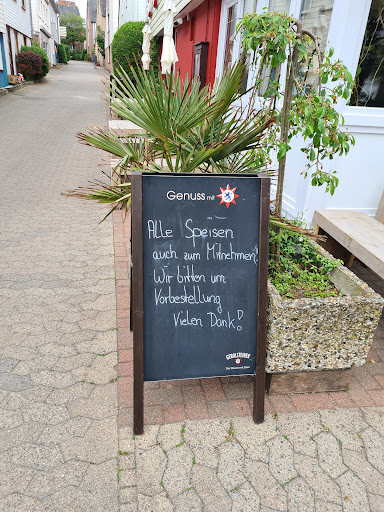 Genuss mit
Alle Speisen
auch zum Mitnehmen!
Wir bitten um
Vorbestellung
Vielen Dank!
GEROLSTEINER